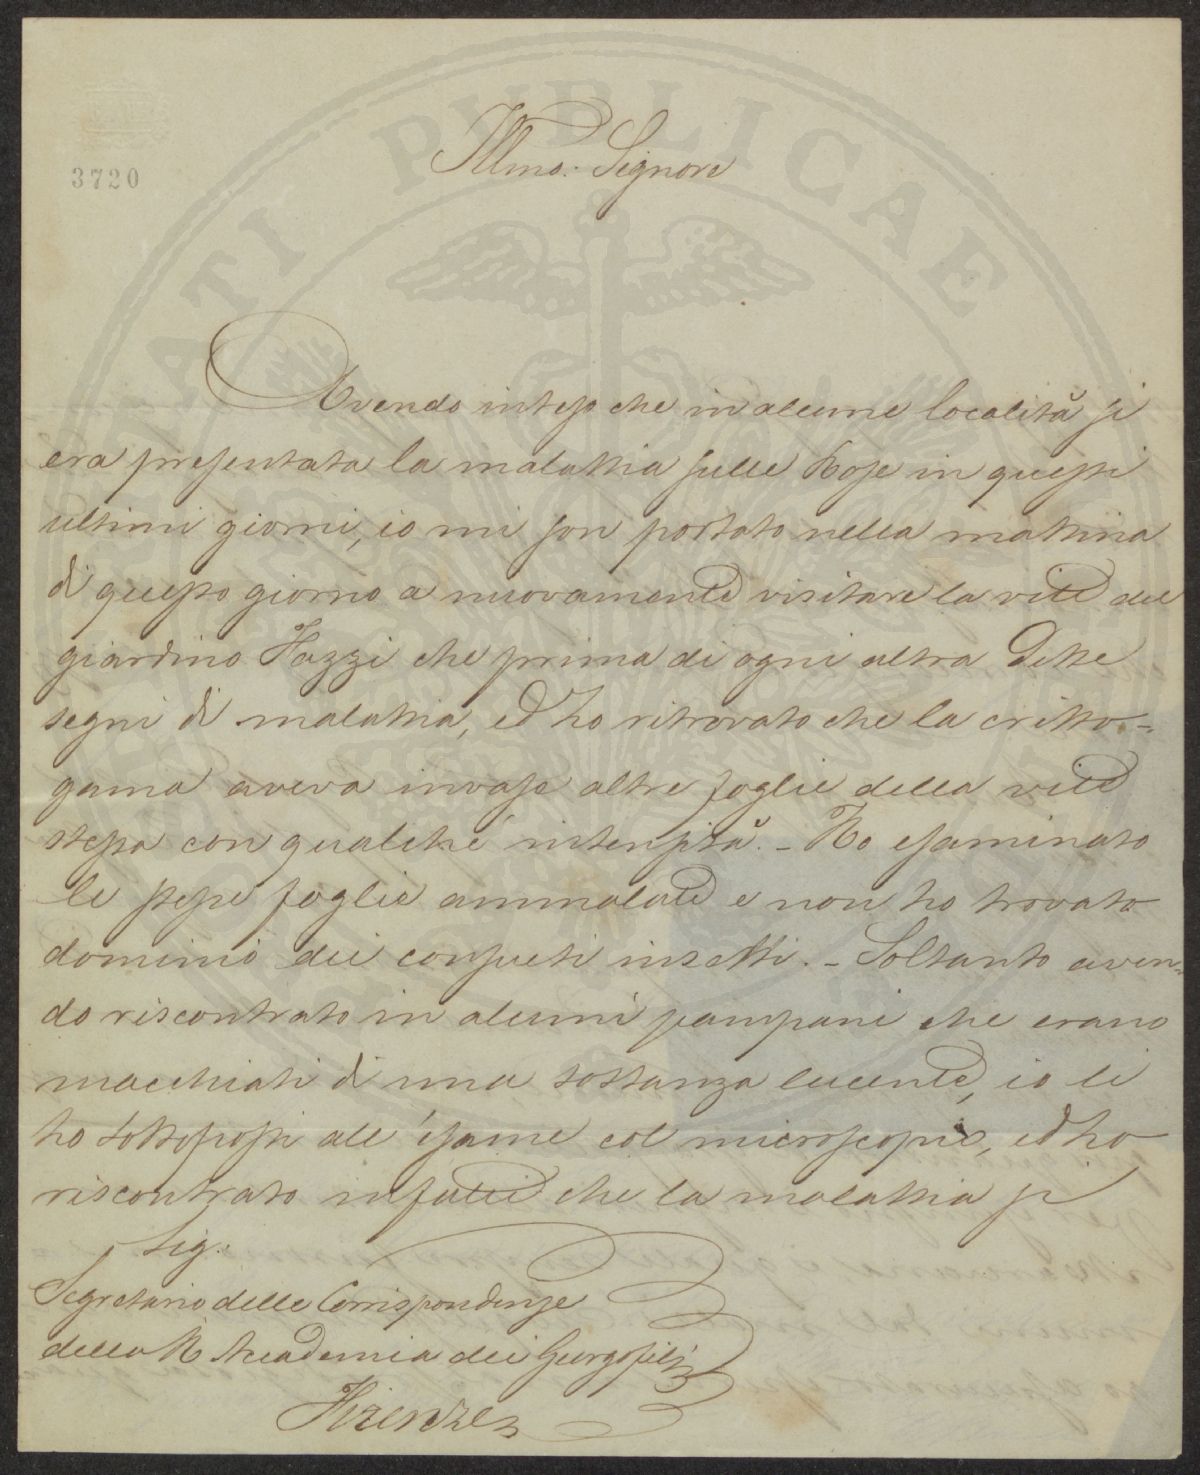 3720
Illmo. Signore
Avendo inteso che in alcune località si
era presentata la malattia sulle Rose in questi
ultimi giorni, io mi son portato nella mattina
di questo giorno a nuovamente visitare la vite del
giardino Fazzi che prima di ogni altra dette
segni di malattia, ed ho ritrovato che la critto-
gama aveva invase altre foglie della vite
stessa con qualche intensità. - Ho esaminato
le stesse foglie ammalate e non ho trovato
dominio dei consueti insetti. - Soltanto aven-
do riscontrato in alcuni pampani che erano
macchiati di una sostanza lucente, io li
ho sottoposti all'esame col microscopio, ed ho
riscontrato infatti che la malattia si
Sig.
Segretario delle Corrispondenze
della R. Accademia dei Georgofili
Firenze
PUBLICAE